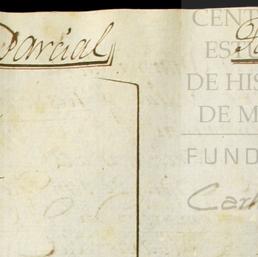 Parcial
CENT
EST
DE HIS
DE M
FUND
Car